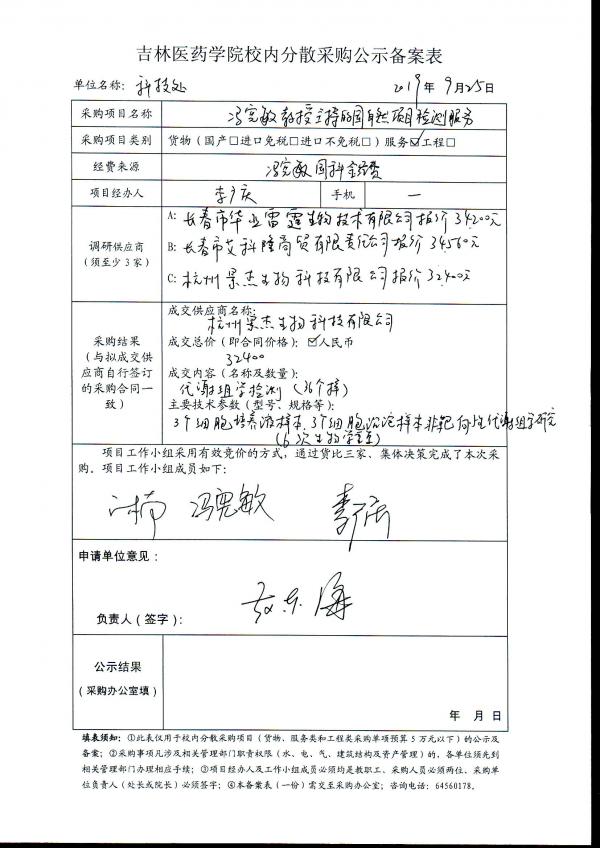 吉林医药学院校内分散采购公示备案表
单位名称：科技处 2019年9月25日
采购项目名称 冯宪敏教授主持的国自然项目检测服务
采购项目类别 货物（国产□进口免税□进口不免税□）服务☑工程□
经费来源 冯宪敏国科金经费
项目经办人 李广庆 手机 —
调研供应商
（须至少3家）
A：长春市华业雷霆生物技术有限公司报价34200元
B：长春市艾科隆商贸有限责任公司报价34560元
C：杭州景杰生物科技有限公司报价32400元
采购结果
（与拟成交供
应商自行签订
的采购合同一
致）
成交供应商名称：
杭州景杰生物科技有限公司
成交总价（即合同价格）：☑人民币
32400
成交内容（名称及数量）：
代谢组学检测（36个样）
主要技术参数（型号、规格等）：
3个细胞培养液样本，3个细胞沉淀样本非靶向性代谢组学研究
（6次生物学重复）
项目工作小组采用有效竞价的方式，通过货比三家、集体决策完成了本次采
购。项目工作小组成员如下：
冯宪敏
申请单位意见：
负责人（签字）：
公示结果
（采购办公室填）
年 月 日
填表须知：①此表仅用于校内分散采购项目（货物、服务类和工程类采购单项预算5万元以下）的公示及
备案；②采购事项凡涉及相关管理部门职责权限（水、电、气、建筑结构及资产管理）的，各单位须先到
相关管理部门办理相应手续；③项目经办人及工作小组成员必须均是教职工、采购人员必须两位、采购单
位负责人（处长或院长）必须签字；④本备案表（一份）需交至采购办公室；咨询电话：64560178。